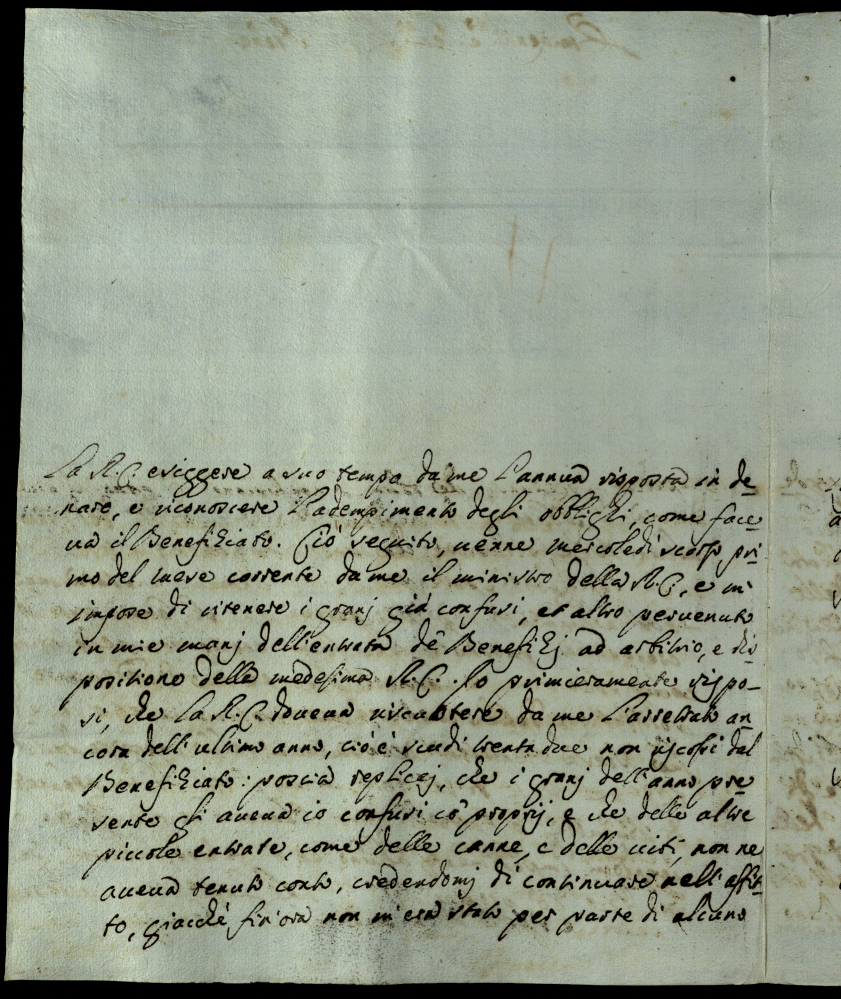 La R.C. esiggere a suo tempo da me l'annua risposta in de
naro, e riconoscere l'adempimento degli obblighi, come face
va il Benefiziato. Ciò seguito, venne mercoledì scorso pri
mo del mese corrente da me il ministro della R.C., e m'
impose di ritenere i granj già confusi, et altro pervenuto
in mie manj dell'entrata de' Benefizj ad arbitrio, e dis
positione della medesima R.C. Io primieramente rispo-
si, che la R.C. doveva riscuotere da me l'arretrato an
cora dell'ultimo anno, cio è scudi trenta due non riscossi dal
Benefiziato: poscia replicaj, che i granj dell'anno pre
sente gli aveva io confusi co' proprij, e che delle altre
piccole entrate, come delle canne, e delle viti, non ne
aveva tenuto conto, credendomj di continuare nell'affit
to, giacchè fin'ora non m'era stato per parte di alcuno